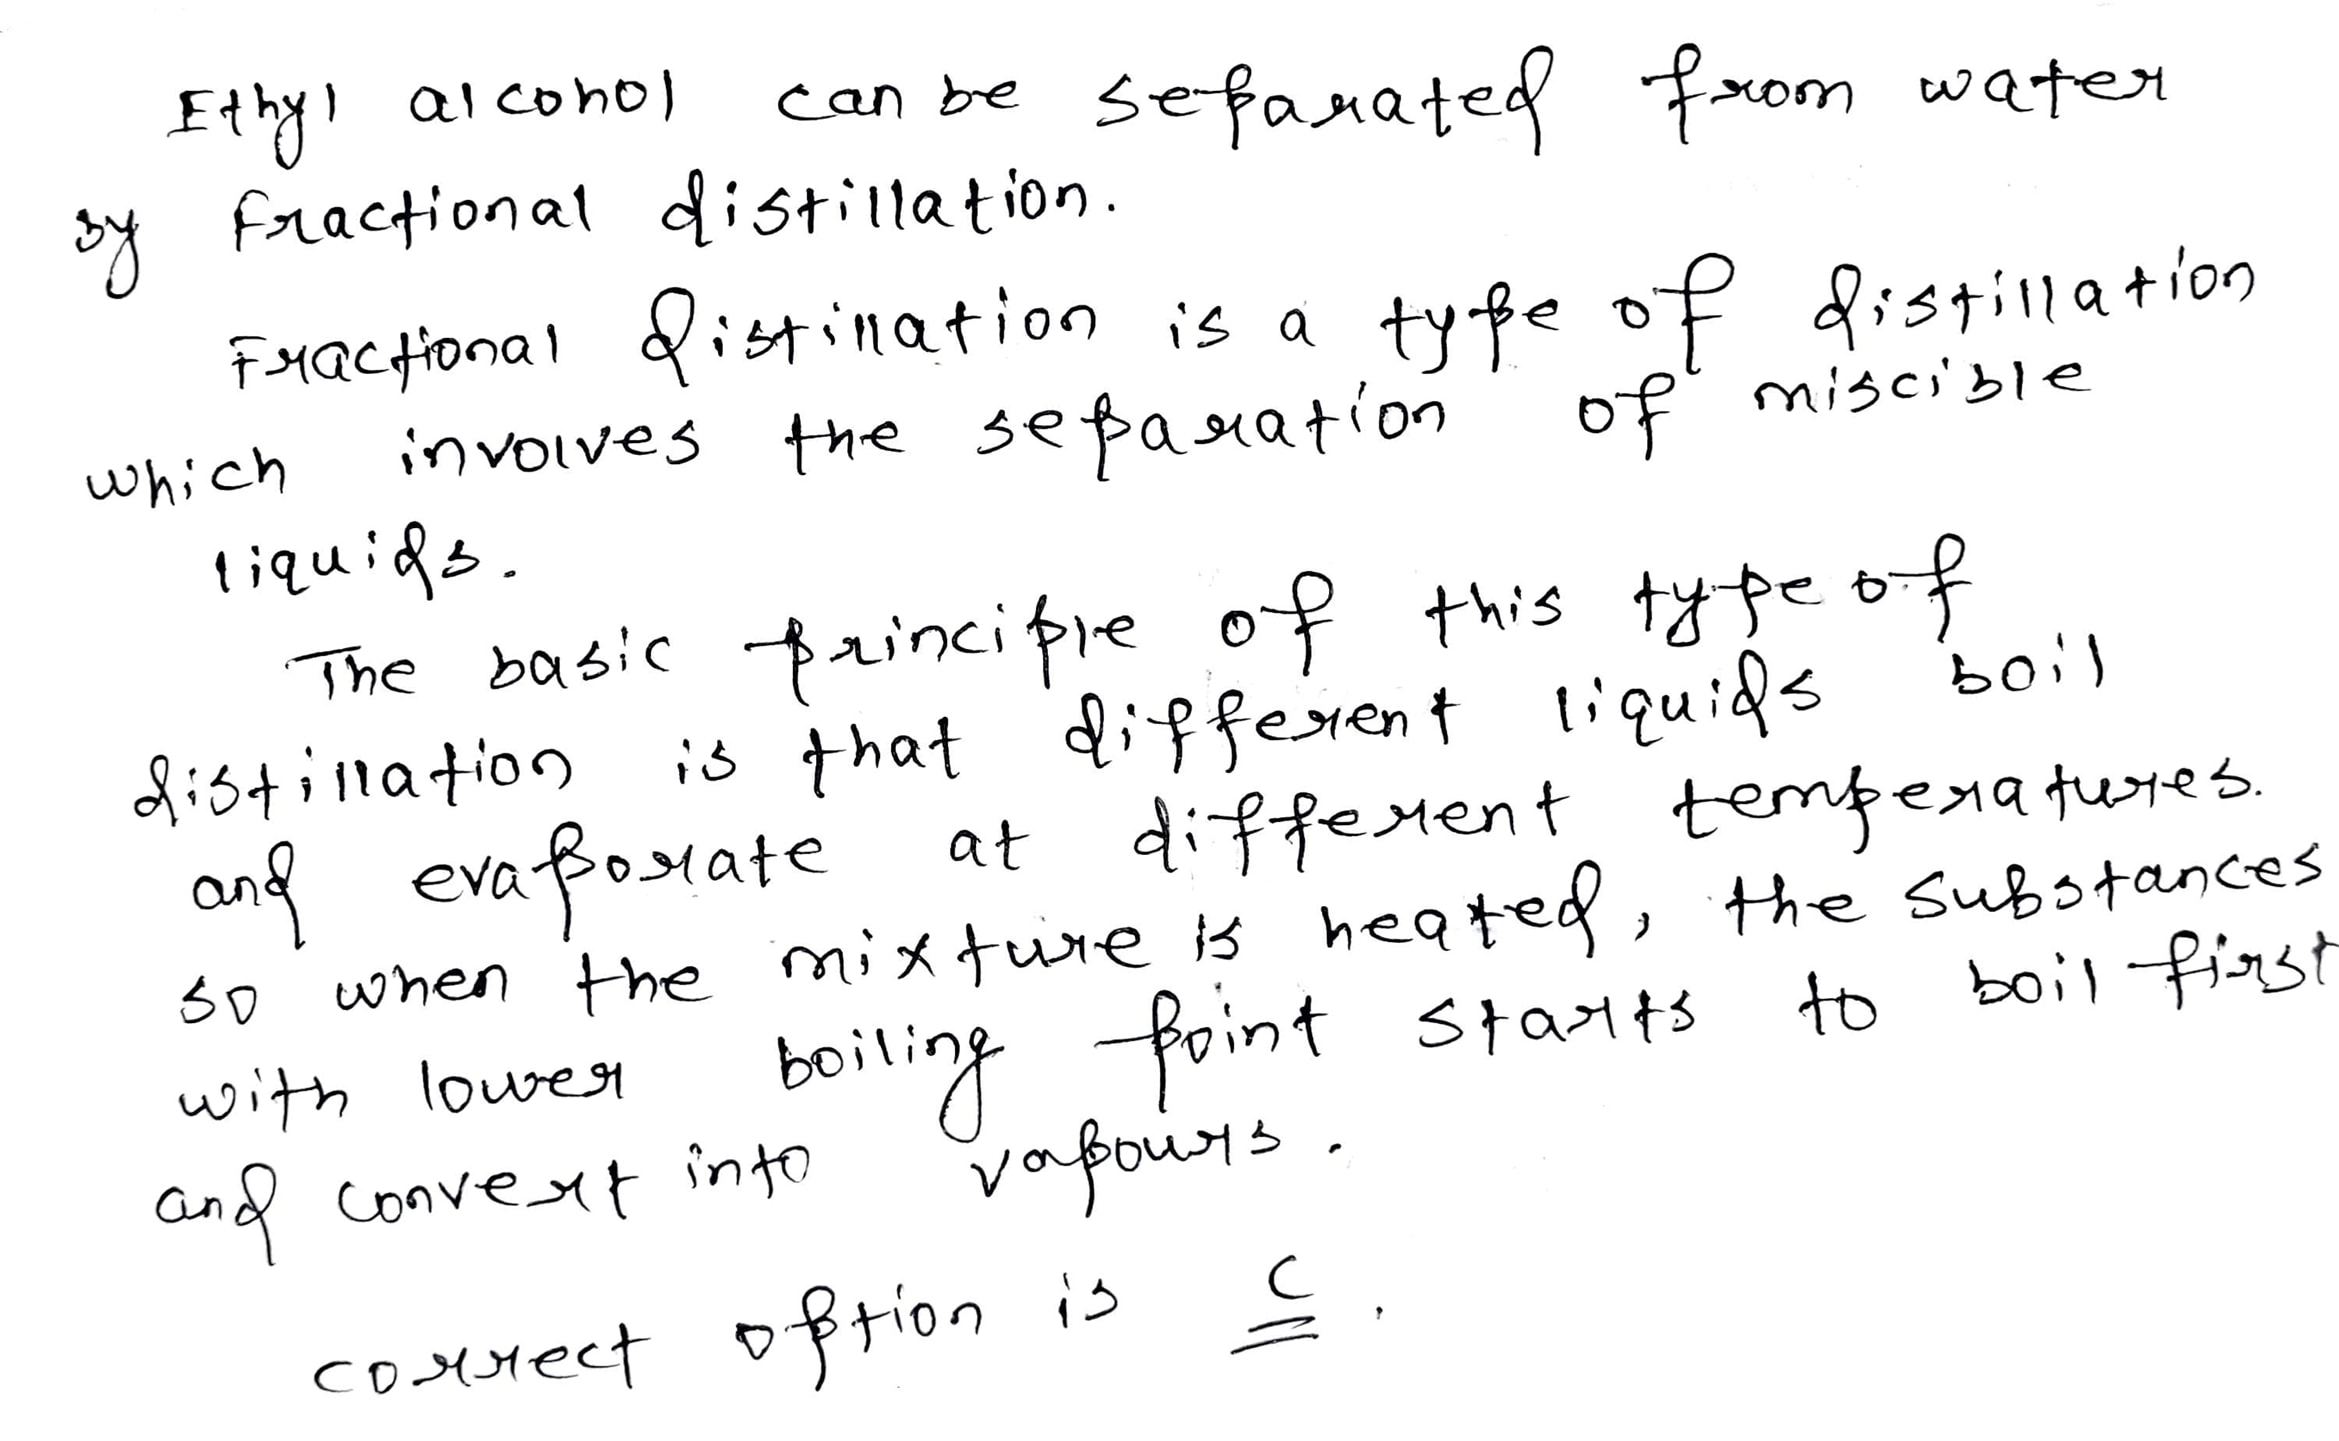 Ethyl alcohol can be separated from water
by fractional distillation.
Fractional distillation is a type of distillation
which involves the separation of miscible
liquids.
The basic principle of this type of
distillation is that different liquids boil
and evaporate at different temperatures.
so when the mixture is heated, the substances
with lower boiling point starts to boil first
and convert into vapours.
correct option is C.